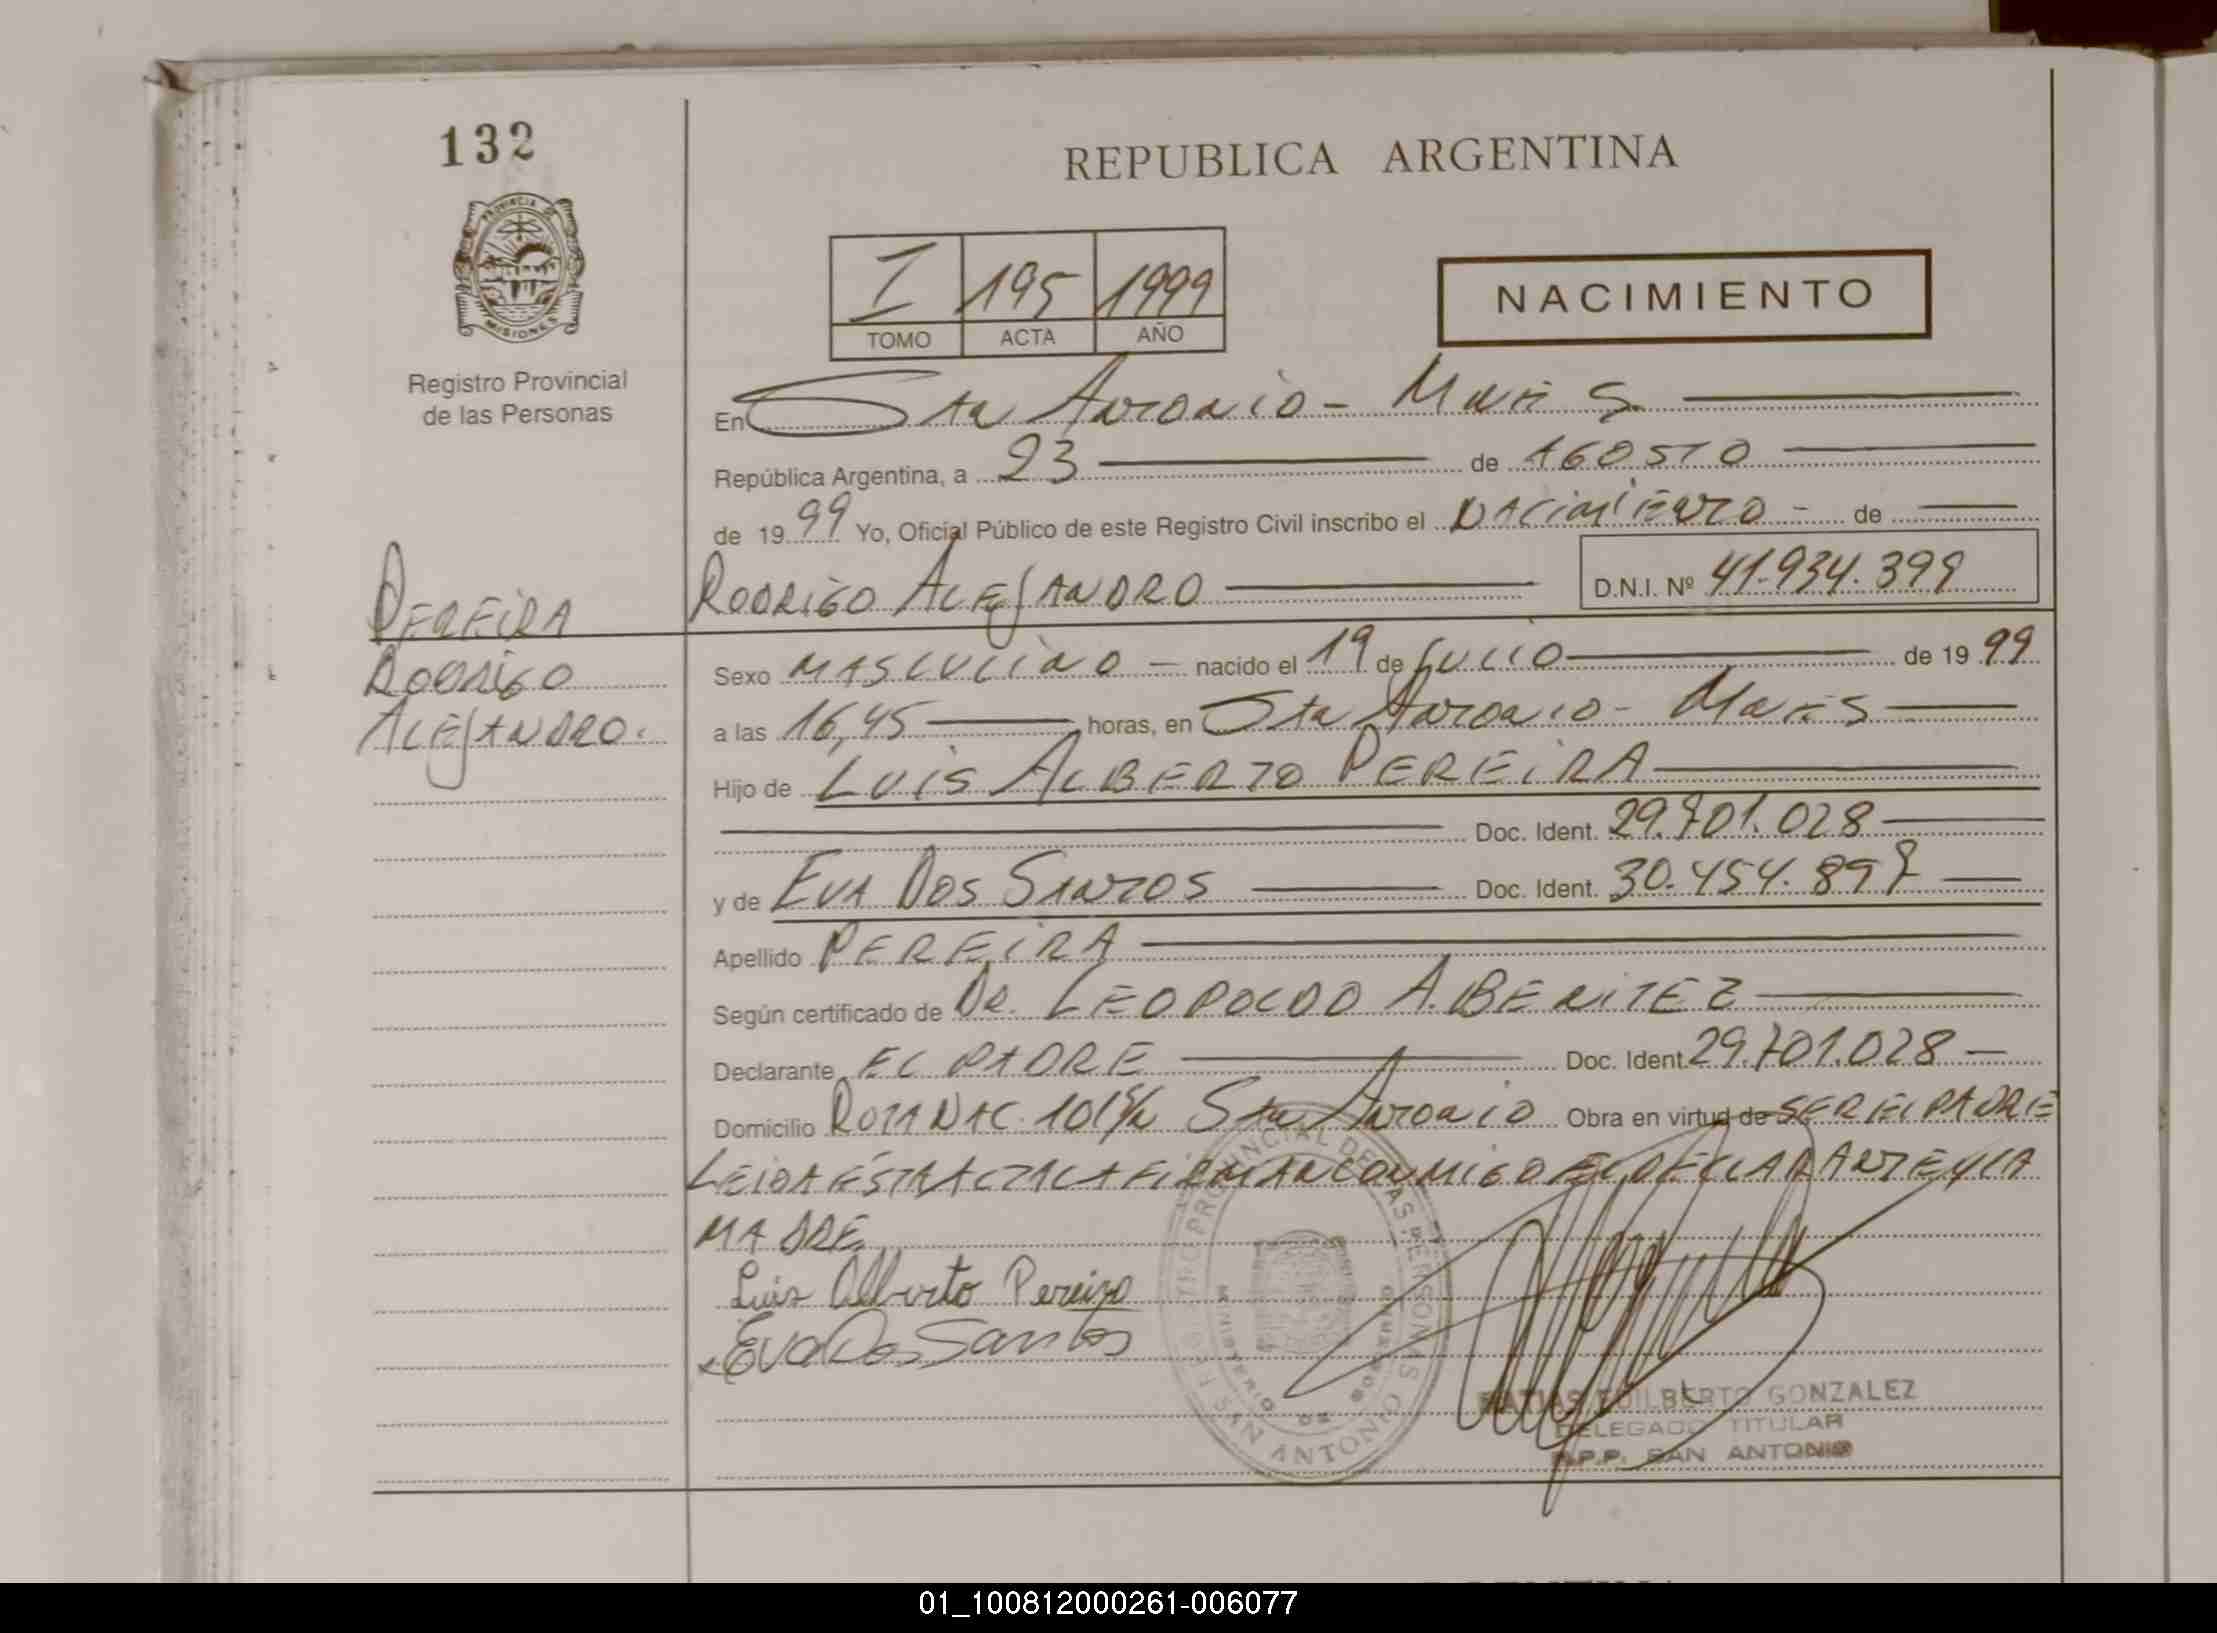 132
REPUBLICA ARGENTINA
PROVINCIA DE
MISIONES
Registro Provincial
de las Personas
I 195 1999
TOMO ACTA AÑO
NACIMIENTO
En San Antonio - Mnes
República Argentina, a 23 de AGOSTO
de 1999 Yo, Oficial Público de este Registro Civil inscribo el NACIMIENTO - de
RODRIGO ALEJANDRO D.N.I. Nº 41.934.399
PEREIRA
RODRIGO
ALEJANDRO.
Sexo MASCULINO - nacido el 19 de JULIO de 1999
a las 16,45 horas, en San Antonio - Mnes
Hijo de LUIS ALBERTO PEREIRA
Doc. Ident. 29.701.028
y de EVA DOS SANTOS Doc. Ident. 30.454.897
Apellido PEREIRA
Según certificado de DR. LEOPOLDO A. BENITEZ
Declarante EL PADRE Doc. Ident. 29.701.028
Domicilio RUTA NAC. 101 S/N San Antonio Obra en virtud de SER EL PADRE
LEIDA ESTA ACTA LA FIRMAN CONMIGO EL DECLARANTE Y LA
MADRE
Luis Alberto Pereira
Eva Dos Santos
PROVINCIAL DE LAS PERSONAS
SAN ANTONIO
MINISTERIO DE GOBIERNO
MATIAS EDILBERTO GONZALEZ
DELEGADO TITULAR
R.P.P. SAN ANTONIO
01_100812000261-006077